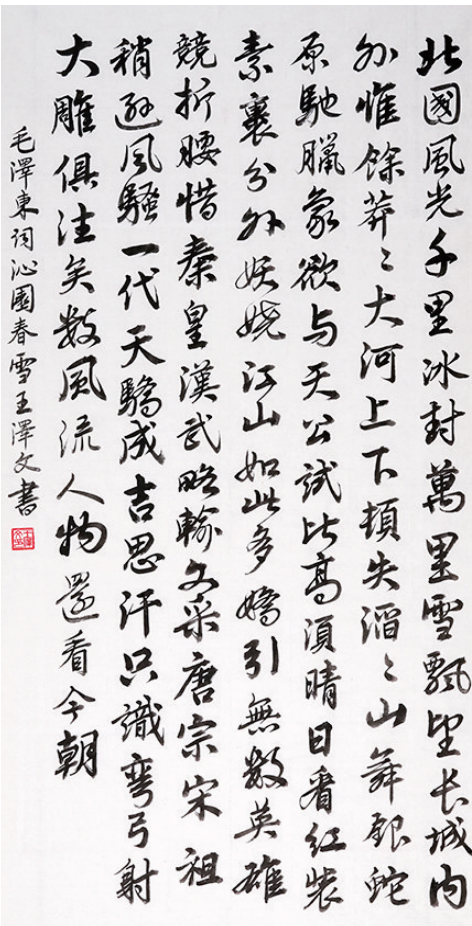 北國風光千里冰封萬里雪飄望长城内
外惟餘莽〻大河上下頓失滔〻山舞銀蛇
原馳臘象欲与天公試比高須晴日看红装
素裹分外妖娆江山如此多嬌引無数英雄
競折腰惜秦皇漢武略輸文采唐宗宋祖
稍遜風騷一代天驕成吉思汗只識彎弓射
大雕俱往矣数風流人物還看今朝
毛澤東词沁園春雪王澤文書